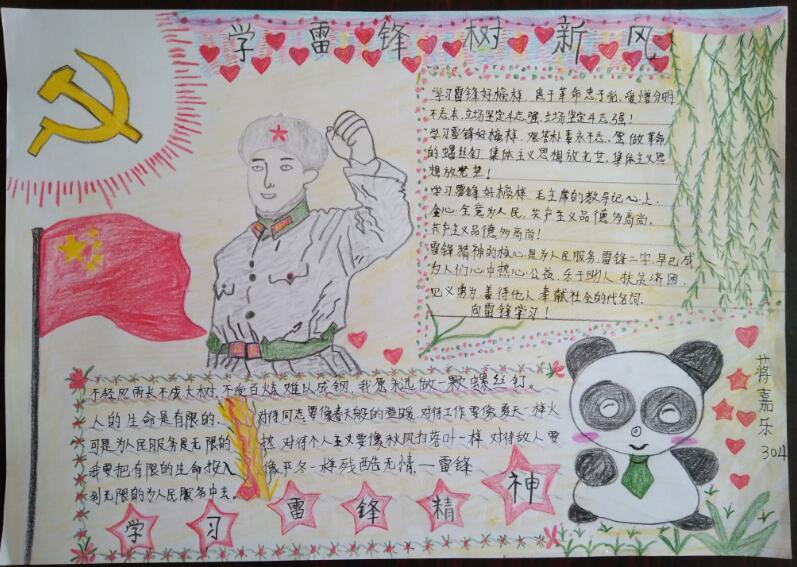 学雷锋树新风
学习雷锋好榜样,忠于革命忠于党,爱憎分明
不忘本,立场坚定斗志强,立场坚定斗志强!
学习雷锋好榜样,艰苦朴素永不忘,愿做革命
的螺丝钉,集体主义思想放光芒,集体主义思
想放光芒!
学习雷锋好榜样,毛主席的教导记心上,
全心全意为人民,共产主义品德多高尚,
共产主义品德多高尚!
雷锋精神的核心是为人民服务,雷锋二字,早已成
为人们心中热心公益,乐于助人,扶贫济困,
见义勇为,善待他人,奉献社会的代名词,
向雷锋学习!
不经风雨长不成大树,不受百炼难以成钢,我愿永远做一颗螺丝钉。
人的生命是有限的,
可是为人民服务是无限的
我要把有限的生命投入
到无限的为人民服务中去。
对待同志要像春天般的温暖,对待工作要像夏天一样火
热,对待个人主义要像秋风扫落叶一样,对待敌人要
像严冬一样残酷无情。—雷锋
学习雷锋精神
蒋嘉乐
304